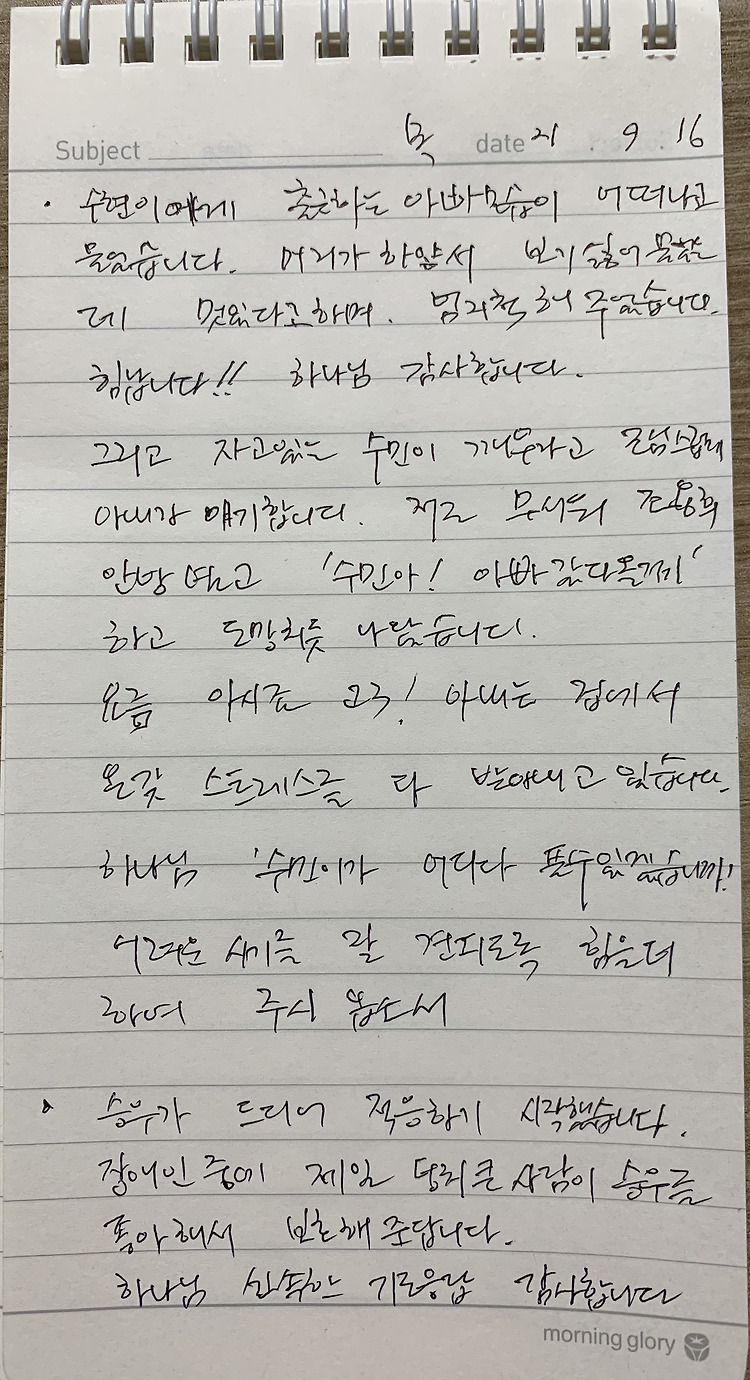 Subject 목 date 21. 9. 16
· 수현이에게 출근하는 아빠모습이 어떠냐고
물었습니다. 머리가 하얘서 보기 싫어 물었는
데 멋있다고하며. 엄지척 해 주었습니다.
힘납니다!! 하나님 감사합니다.
그리고 자고있는 수민이 깨우라고 조심스럽게
아내가 얘기합니다. 저로 무서워 조용히
안방 문열고 '수민아! 아빠 갔다올께'
하고 도망치듯 나왔습니다.
요즘 아시죠 코로! 아내는 집에서
온갖 스트레스를 다 받아내고 있습니다.
하나님 '수민이가 어디다 풀수있겠습니까!
어려운 시기를 잘 견디도록 힘을더
하여 주시 옵소서
· 승우가 드디어 적응하기 시작했습니다.
장애인중에 제일 덩치큰 사람이 승우를
좋아해서 보호해 준답니다.
하나님 신속한 기도응답 감사합니다
morning glory